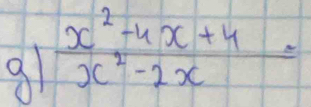 g) x² - 4x + 4 =
x² - 2x